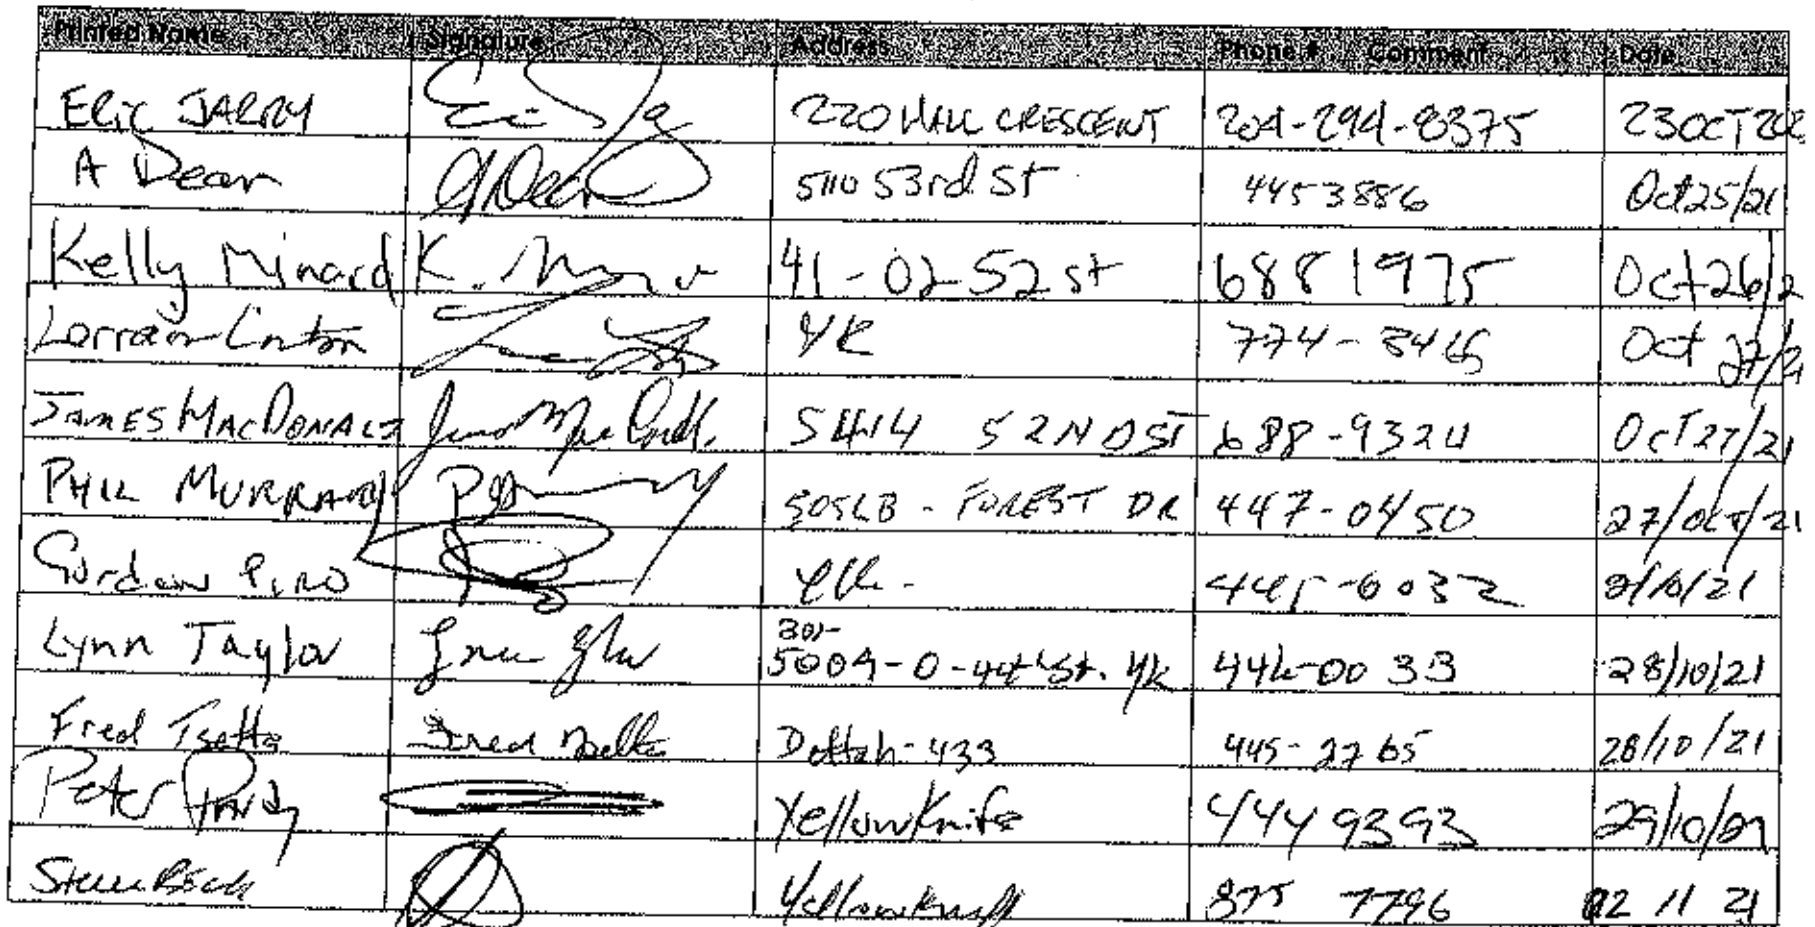 Printed Name Signature Address Phone # Comment Date
Eric JARRY 220 HALL CRESCENT 204-294-8375 23 OCT 202
A Dean A Dean 5110 53rd St 4453886 Oct 25/21
Kelly Minard K. 41-02-52 st 688 1975 Oct 26/2
Lorrain Linton YK 774-3465 Oct 27/2
JAMES MACDONALD 5414 52ND ST 688-9324 OCT 27/21
PHIL MURRAY FOREST DR 447-0450 27/OCT/21
Gordon Piro YK - 445-6032 /10/21
Lynn Taylor 301-
5009-0-44th St. YK 446-0033 28/10/21
Fred Tsetta Fred Tsetta Dettah-433 445-2765 28/10/21
Peter Yellowknife 444 9393 29/10/21
Steve Beck Yellowknife 875 7796 02 11 21